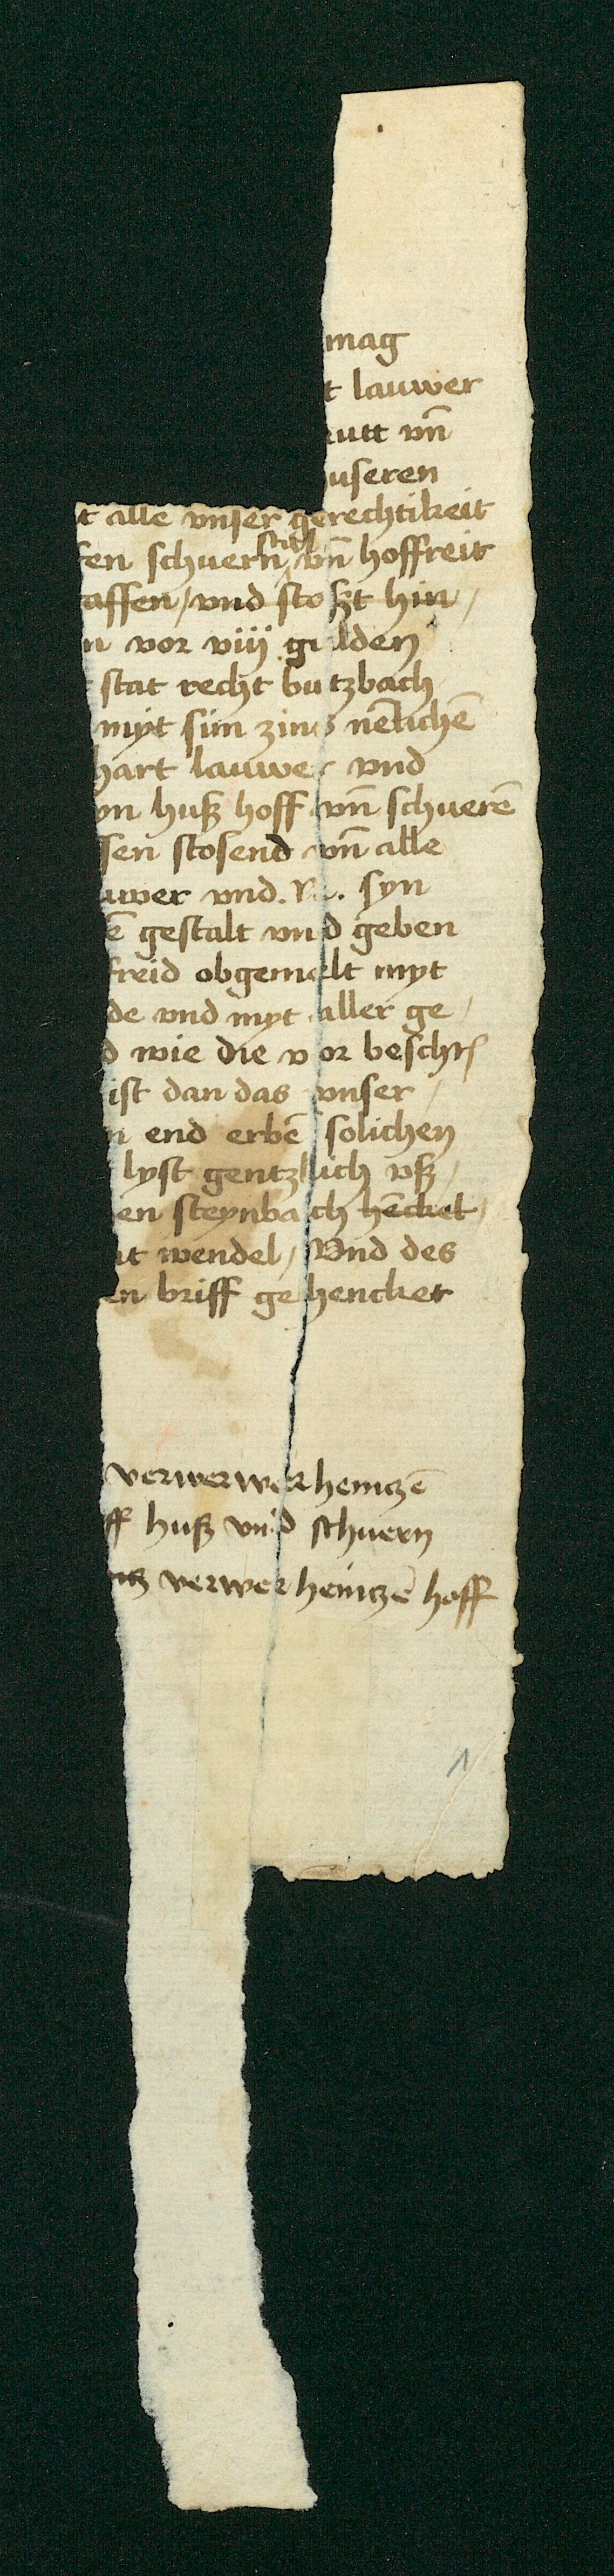 mag
t lauwer
utt vn̄
useren
t alle vnser gerechtikeit
en schuern vn̄ hoffreit
affen / vnd stoßt hin /
n vor viij gulden
stat recht butzbach
myt sim zins nēlichē
hart lauwer vnd
yn huß hoff vn̄ schuerē
sen stosend vn̄ alle
uwer vnd. syn
ē gestalt vnd geben
freid obgemelt myt
de vnd myt aller ge /
d wie die vor beschr
ist dan das vnser /
n end erbē solichen
lyst gentzlich vß /
en steynbach hēcket /
it wendel / Vnd des
en briff gehencket
verwerwer heintzē
ff huß vnd schuern
tz verwer heintzē hoff
1